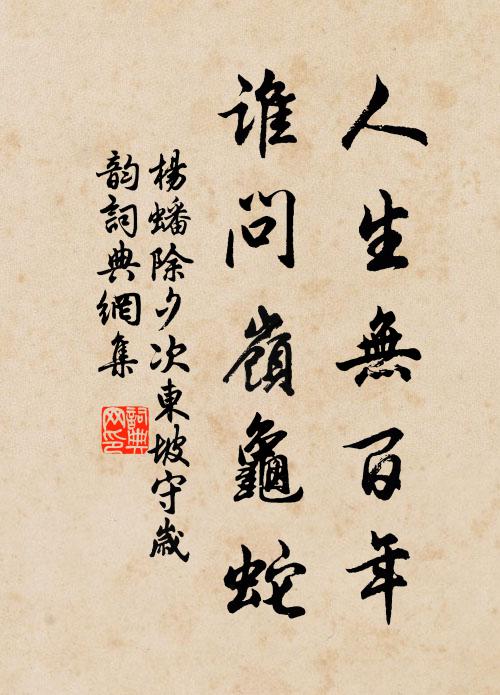 人生無百年
誰問嶺龜蛇
楊蟠除夕次東坡守歲
韵詞典網集
詞典网印